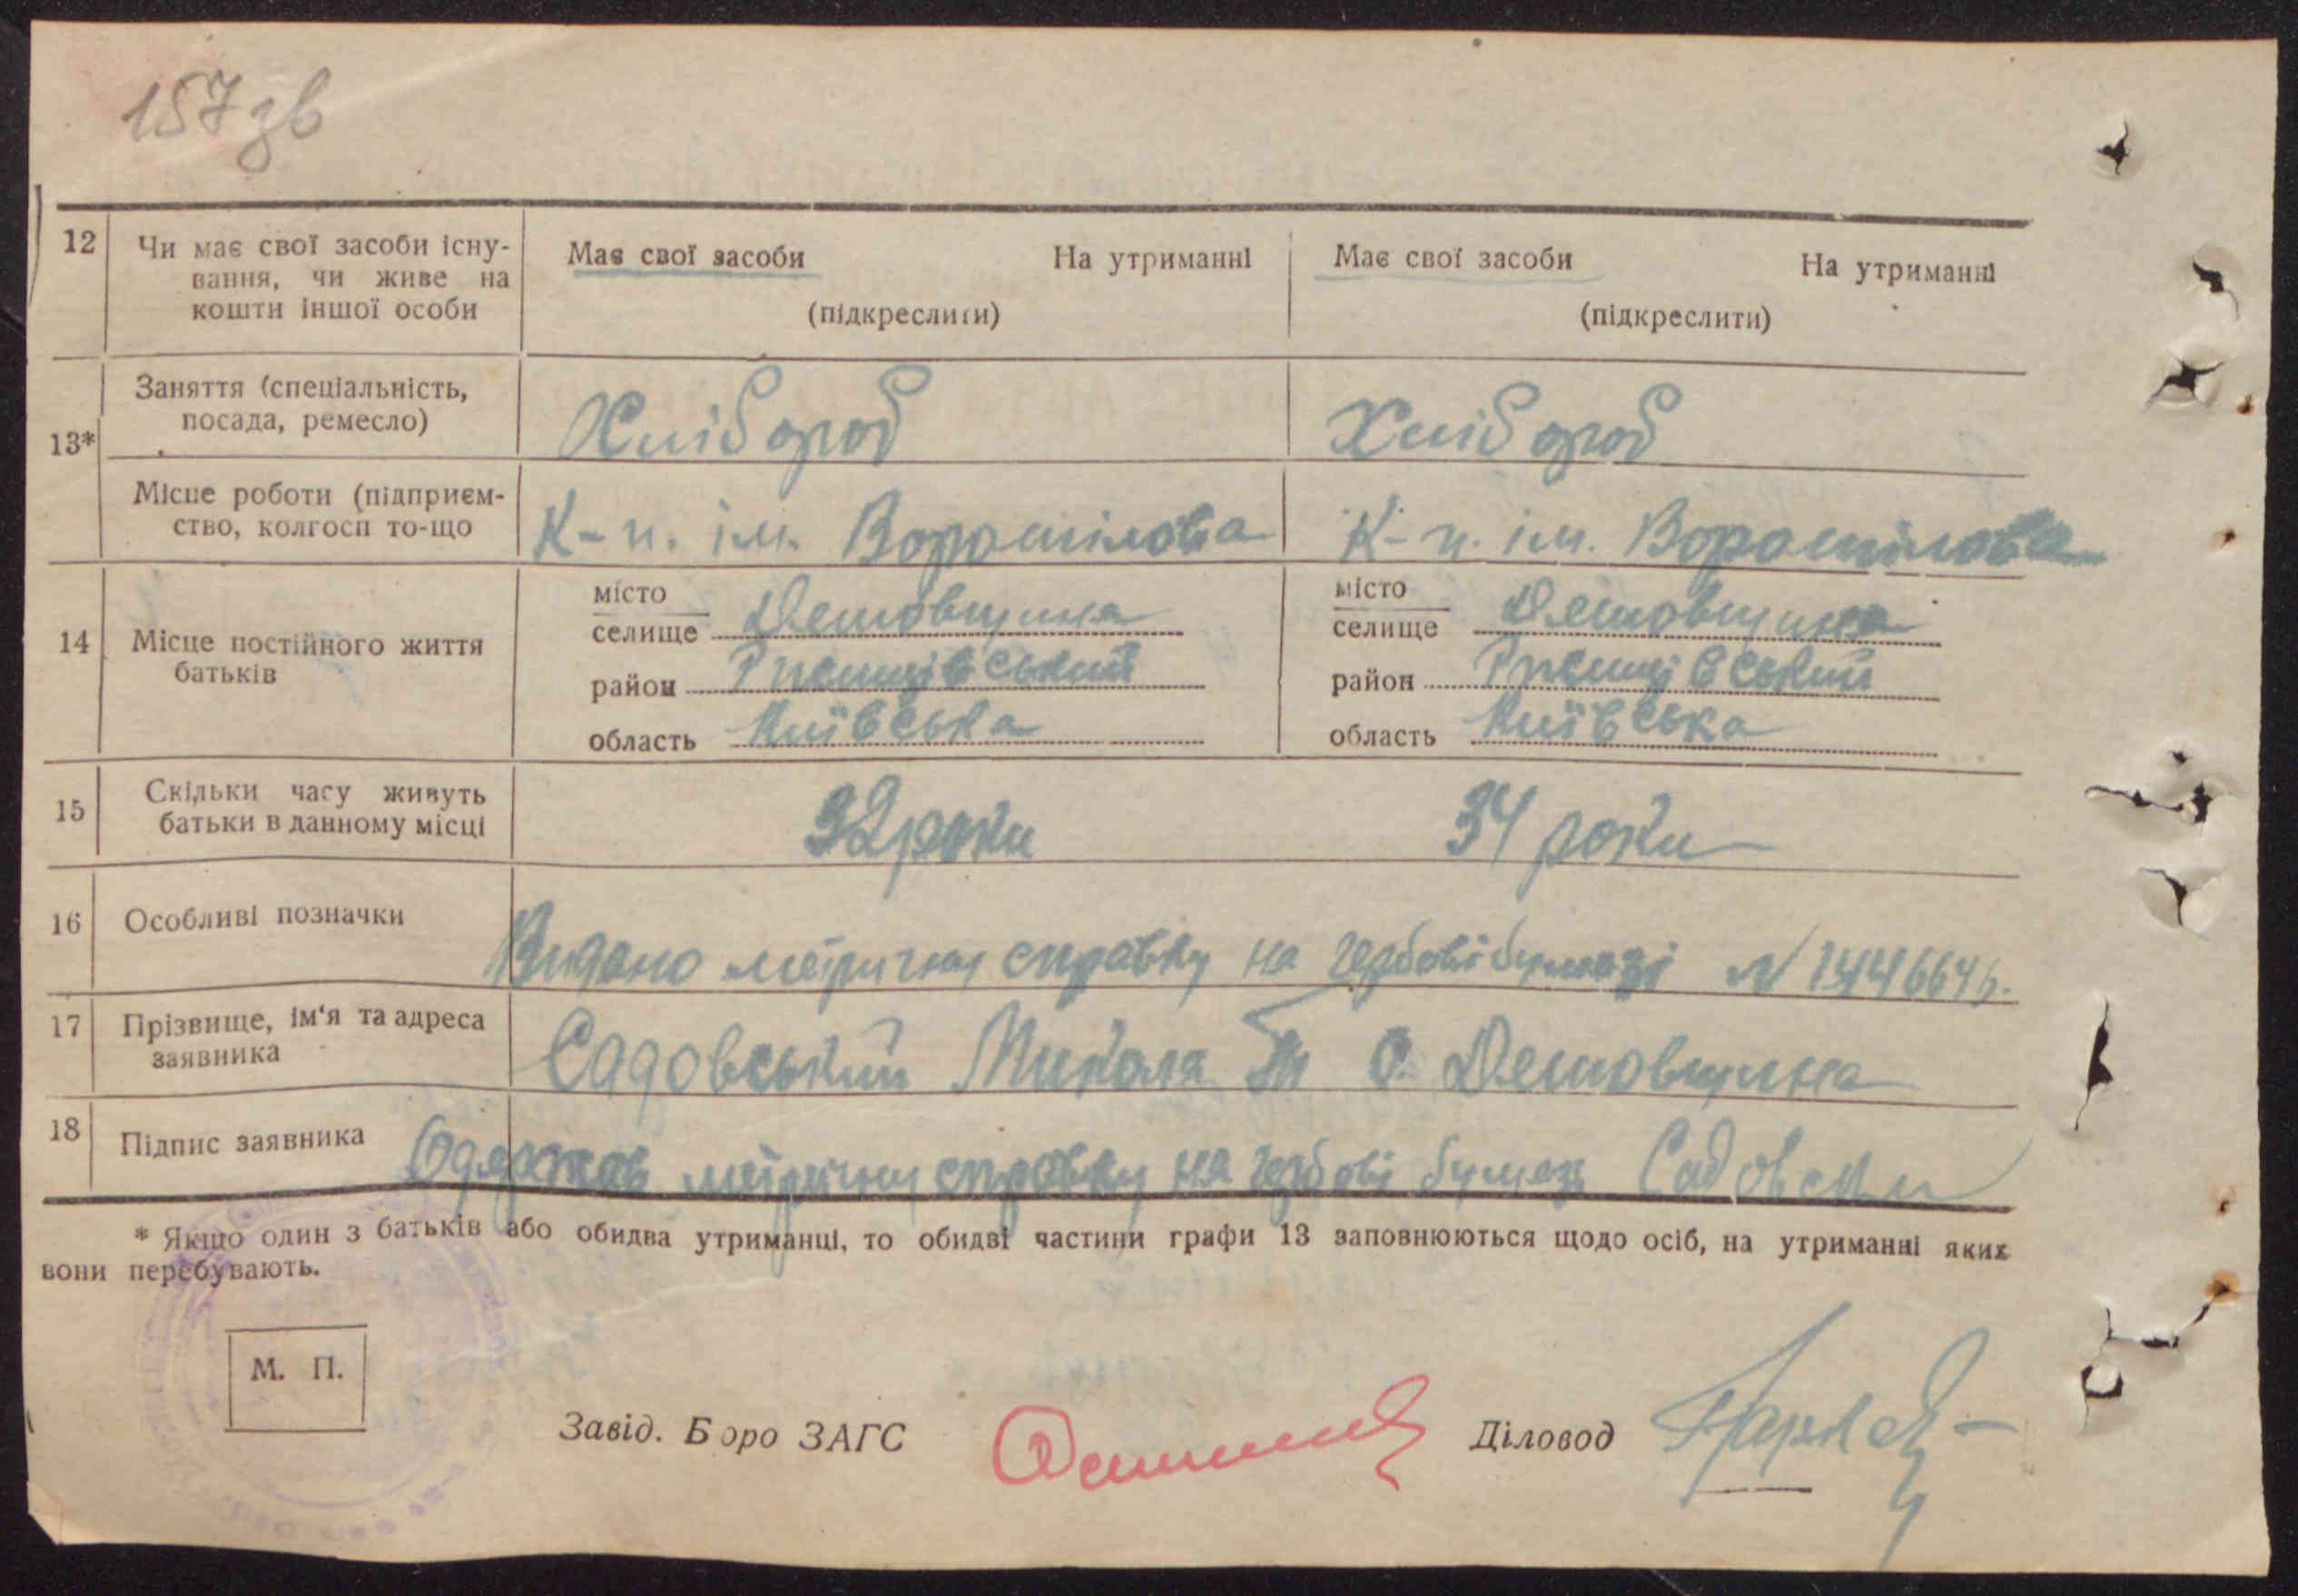 157 зв
12 Чи має свої засоби існу- Має свої засоби На утриманні Має свої засоби На утриманні
вання, чи живе на
кошти іншої особи (підкреслити) (підкреслити)
Заняття (спеціальність,
посада, ремесло) Хлібороб Хлібороб
13*
Місце роботи (підприєм-
ство, колгосп то-що К-п. ім. Ворошілова К-п. ім. Ворошілова
місто місто
селище Демовщина селище Демовщина
14 Місце постійного життя
батьків район Ржищівський район Ржищівський
область Київська область Київська
15 Скільки часу живуть
батьки в данному місці 32 роки 34 роки
16 Особливі позначки Видано метричну справку на гербові бумазі № 1446646.
17 Прізвище, ім'я та адреса
заявника Садовський Микола с. Демовщина
18 Підпис заявника метричну справку на гербові Садовски
* Якщо один з батьків або обидва утриманці, то обидві частини графи 13 заповнюються щодо осіб, на утриманні яких
вони перебувають.
М. П.
Завід. Бюро ЗАГС Діловод